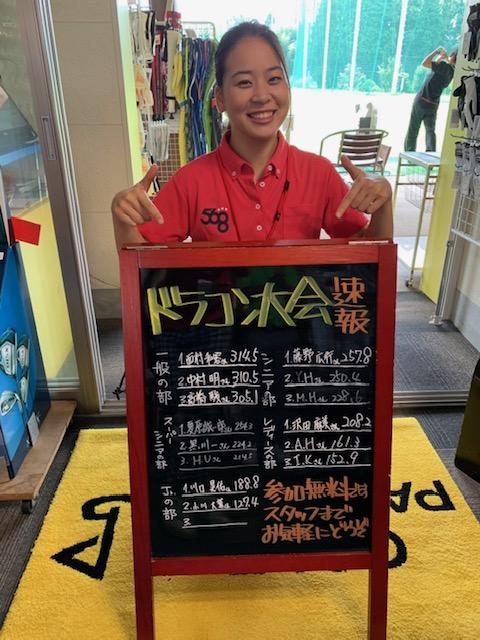 568
ドラコン大会 速報
一般の部
1. 西村 さん 314.5
2. 中村 明さん 310.5
3. 宮崎 さん 305.1
シニア部
1. 藤野 広行さん 257.8
2. Y.Hさん 250.4
3. M.Hさん 228.6
スーパーシニアの部
1. さん
2. 黒川 一さん
3. H.Uさん
レディースの部
1. 沢田 さん 208.2
2. A.Hさん 161.3
3. I.Kさん 152.9
Jr.の部
1. 川口 さん 188.8
2. 小川 さん 127.4
3.
参加無料です
スタッフまで
お気軽にどうぞ
PA